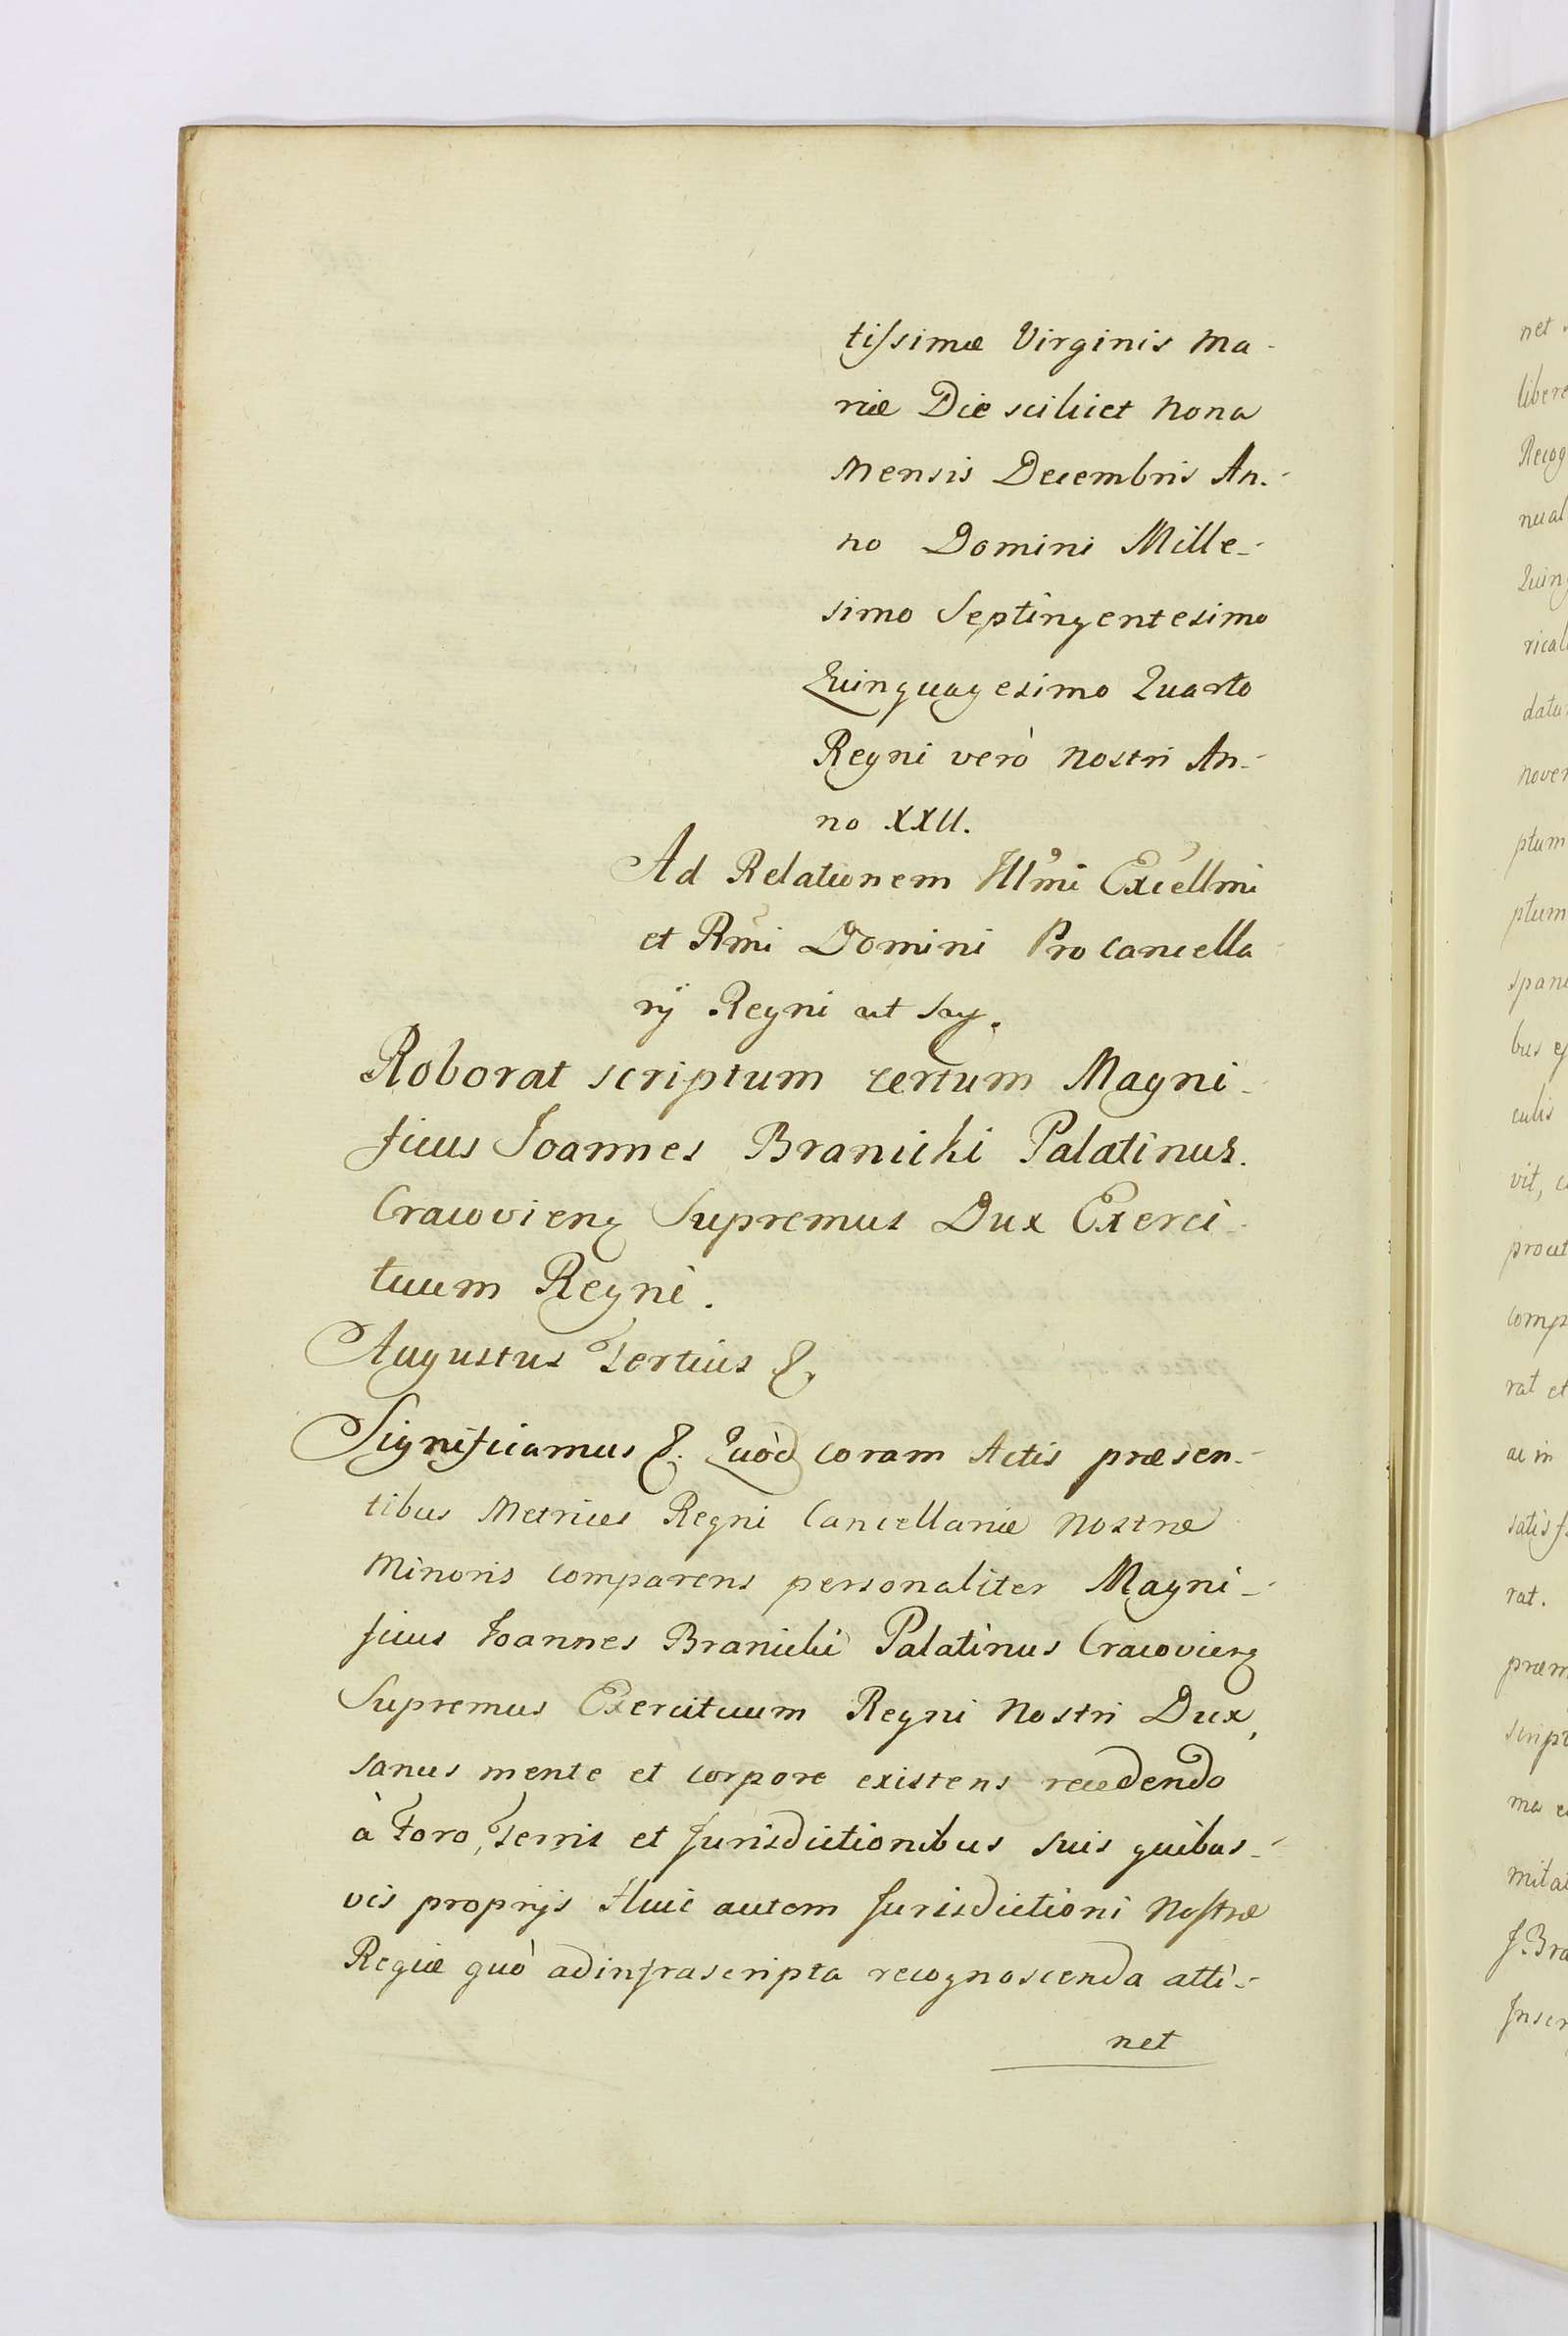 tissimæ Virginis Ma-
riæ Die scilicet Nona
Mensis Decembris An-
no Domini Mille-
simo Septingentesimo
Quinquagesimo Quarto
Regni verò Nostri An-
no XXII.
Ad Relationem Illmi Excellmi
et Rmi Domini Procancella-
rij Regni ut
Roborat scriptum certum Magni-
ficus Joannes Branicki Palatinus
Cracovien Supremus Dux Exerci-
tuum Regni.
Augustus Tertius &
Significamus &. Quòd coram Actis præsen-
tibus Metrices Regni Cancellariæ Nostræ
Minoris comparens personaliter Magni-
ficus Joannes Branicki Palatinus Cracovien
Supremus Exercituum Regni Nostri Dux,
sanus mente et corpore existens recedendo
à Foro, Terris et Jurisdictionibus suis quibus-
vis proprijs Huic autem Jurisdictioni Nostræ
Regiæ quò ad infrascripta recognoscenda atti-
net
net
libere
Recog
nual
Quinq
rical
datu
nover
ptum
ptum
span
bus
culis
vit,
prout
comp
rat et
ac in
satisf
rat.
præm
script
ma
mitat
J. Bra
Inscr